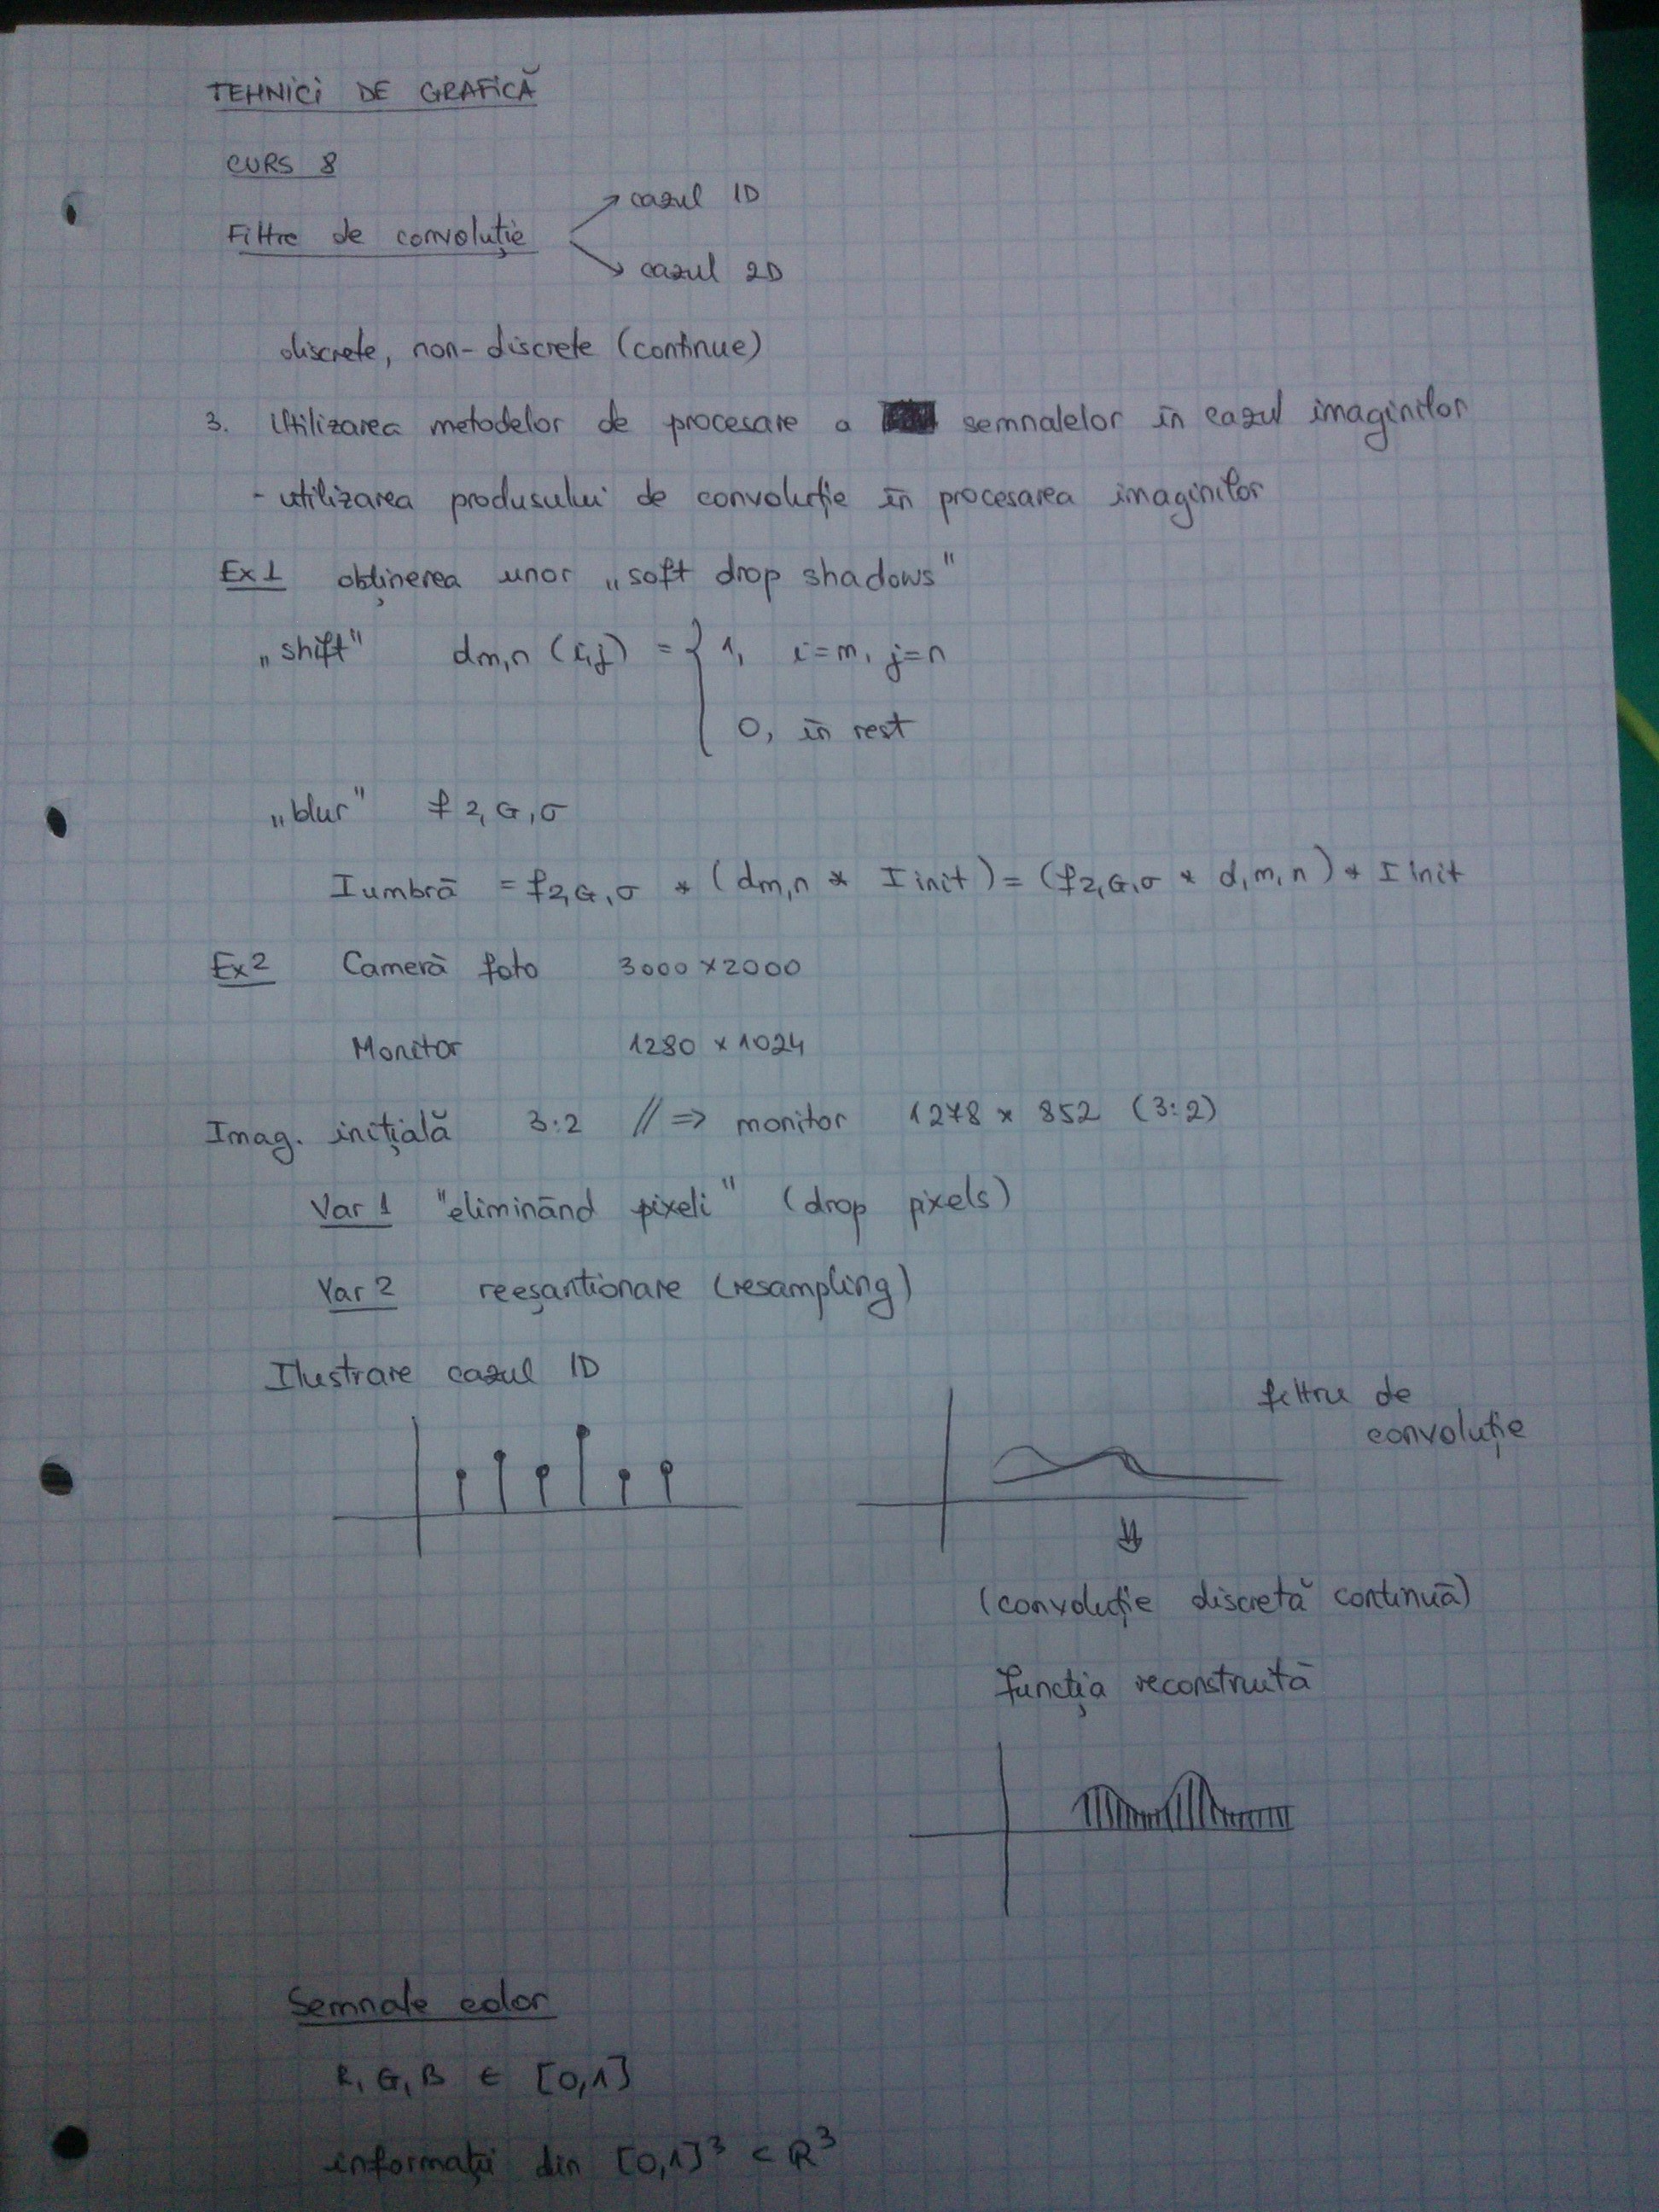 TEHNICI DE GRAFICĂ
CURS 8
Filtre de convoluție
cazul 1D
cazul 2D
discrete, non-discrete (continue)
3. Utilizarea metodelor de procesare a semnalelor în cazul imaginilor
- utilizarea produsului de convoluție în procesarea imaginilor
Ex1 obținerea unor „soft drop shadows"
„shift" dm,n (i,j) = { 1, i=m, j=n
0, în rest
„blur" f2,G,σ
Iumbră = f2,G,σ * (dm,n * Iinit) = (f2,G,σ * d,m,n) * Iinit
Ex2 Cameră foto 3000 x 2000
Monitor 1280 x 1024
Imag. inițială 3:2 // => monitor 1278 x 852 (3:2)
Var 1 "eliminând pixeli" (drop pixels)
Var 2 reeșantionare (resampling)
Ilustrare cazul 1D
filtru de
convoluție
(convoluție discretă continuă)
funcția reconstruită
Semnale color
R, G, B ∈ [0,1]
informații din [0,1]³ ⊂ R³